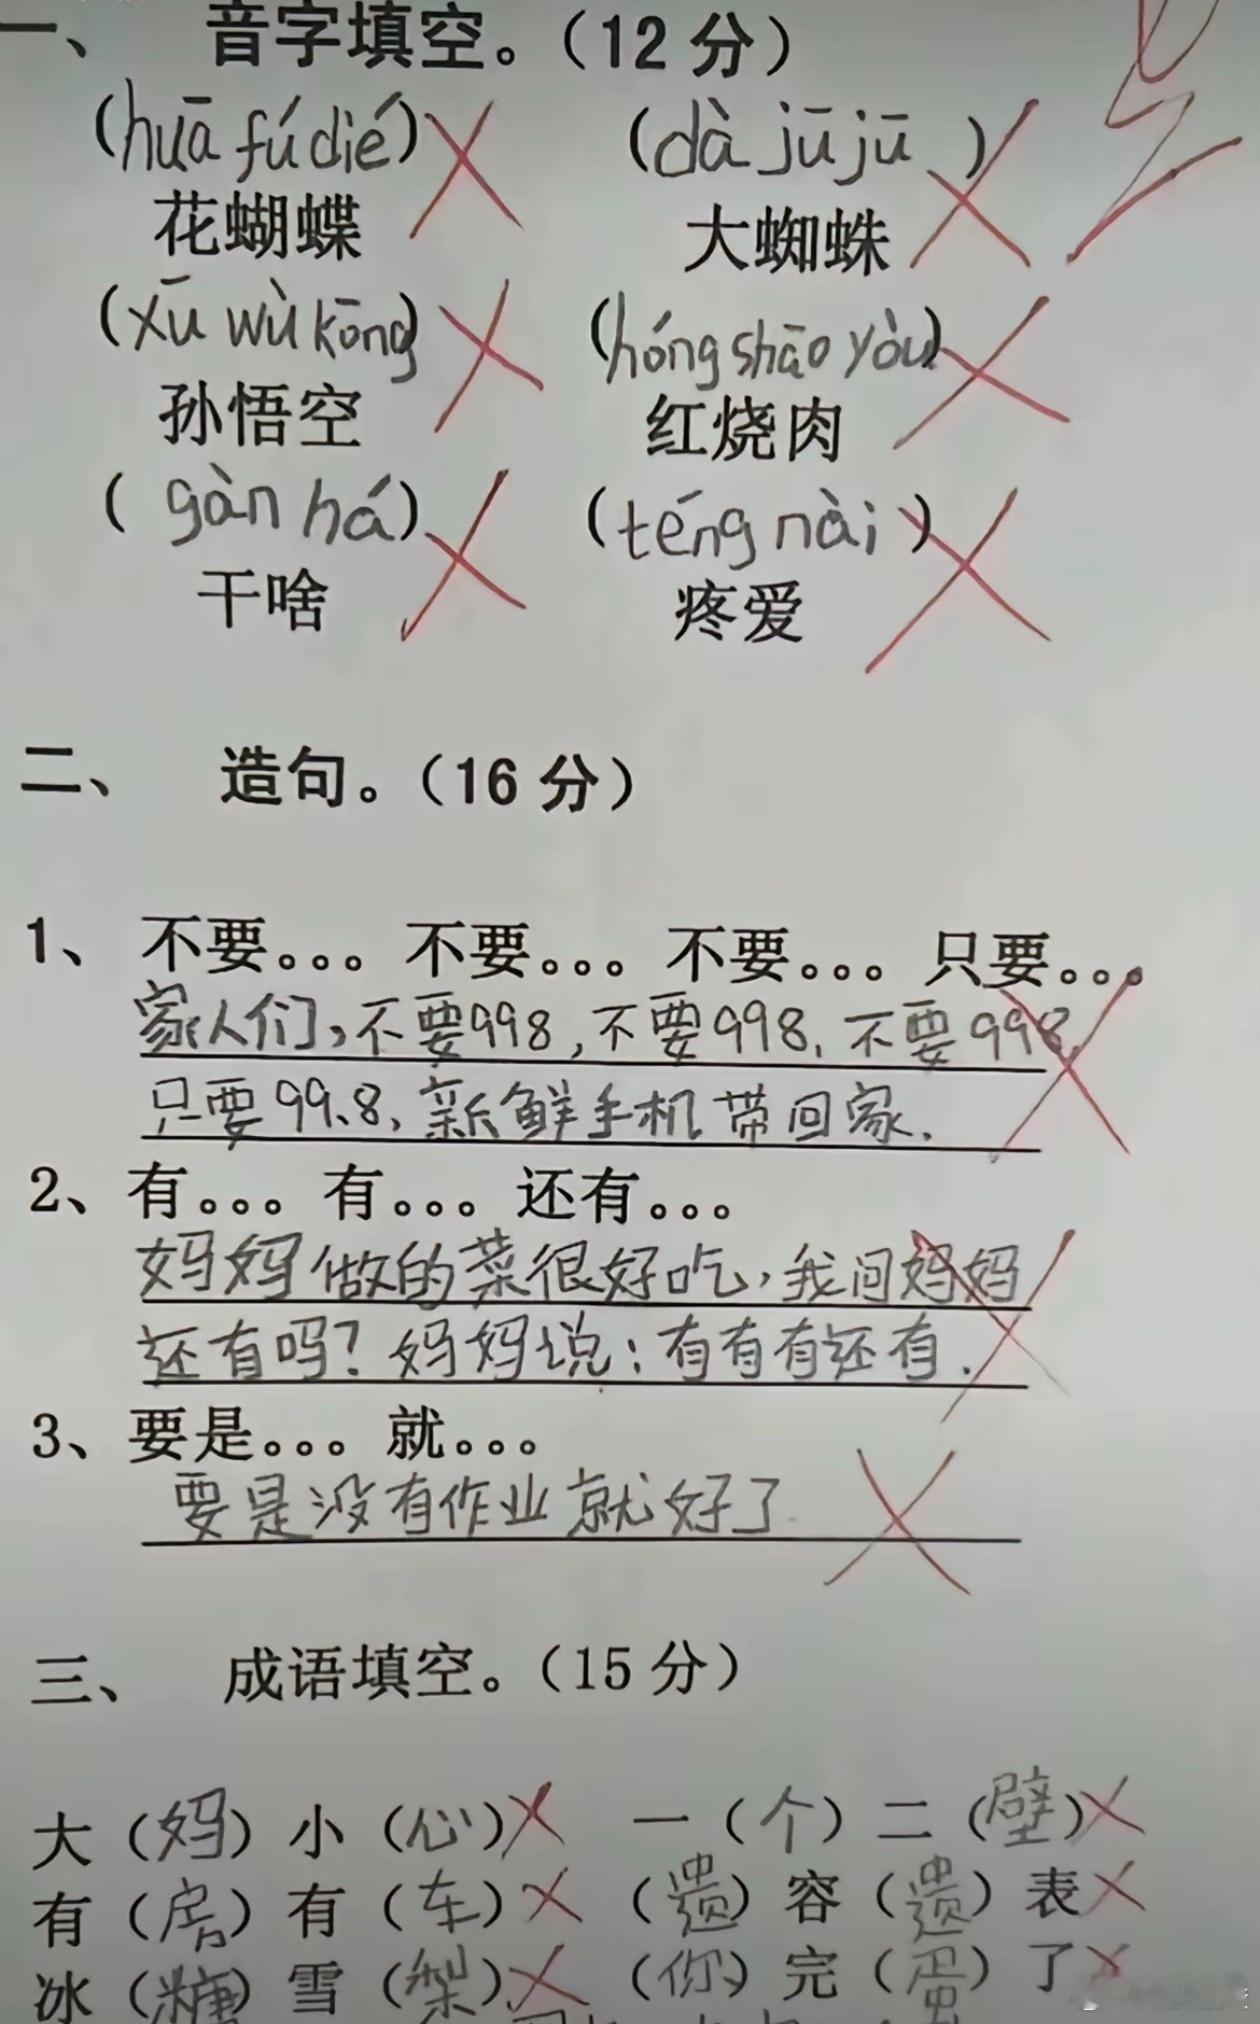 一、 音字填空。（12分）
（huā fú dié） （dà jū jū ）
花蝴蝶 大蜘蛛
（xū wù kōng） （hóng shāo yòu）
孙悟空 红烧肉
（ gàn há） （téng nài ）
干啥 疼爱
二、 造句。（16分）
1、不要。。。不要。。。不要。。。只要。。。
家人们，不要998，不要998、不要998、
只要99.8、新鲜手机带回家.
2、有。。。有。。。还有。。。
妈妈做的菜很好吃，我问妈妈
还有吗？妈妈说：有有有还有.
3、要是。。。就。。。
要是没有作业就好了
三、 成语填空。（15分）
大（妈）小（心） 一（个）二（壁）
有（房）有（车） （遗）容（遗）表
冰（糖）雪（梨） （你）完（蛋）了